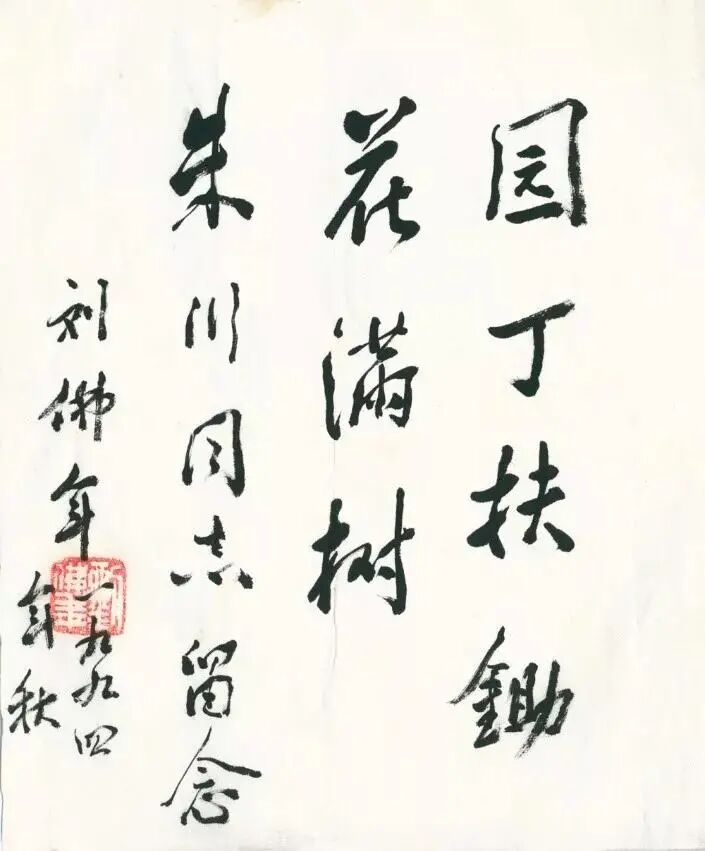 园丁扶鋤
花满树
朱川同志留念
刘佛年
一九九四
年秋